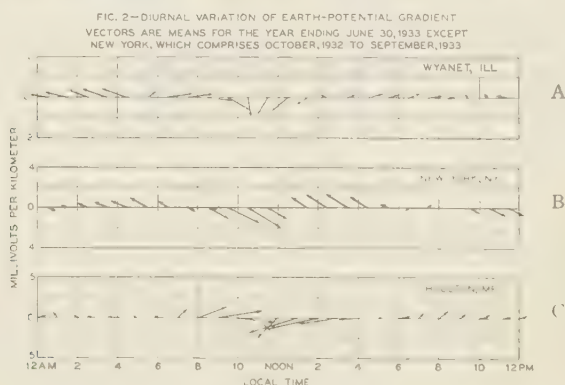 FIG. 2—DIURNAL VARIATION OF EARTH-POTENTIAL GRADIENT
VECTORS ARE MEANS FOR THE YEAR ENDING JUNE 30, 1933 EXCEPT
NEW YORK, WHICH COMPRISES OCTOBER, 1932 TO SEPTEMBER, 1933
WYANET, ILL
A
2
4
B
0
4
MILLIVOLTS PER KILOMETER
5
5
12 AM 2 4 6 8 10 NOON 2 4 6 8 10 12 PM
LOCAL TIME